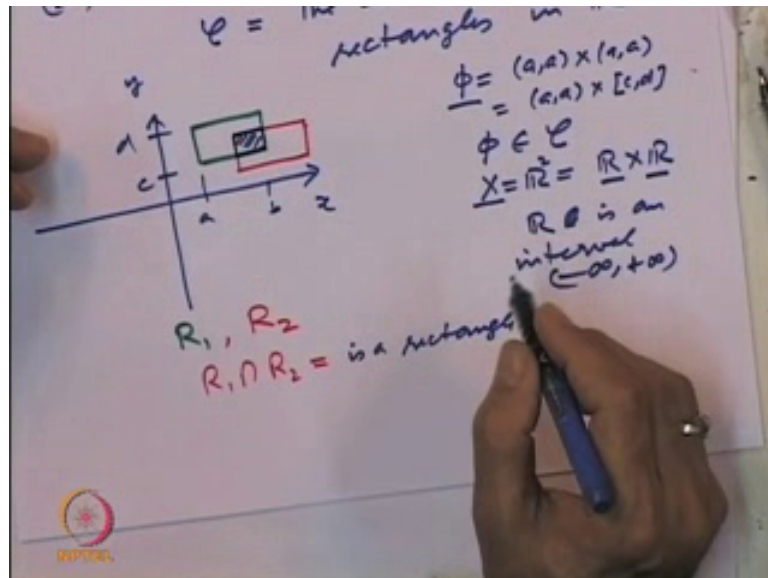 𝒞 = the
rectangles in
ϕ = (a,a) × (a,a)
= (a,a) × [c,d]
ϕ ∈ 𝒞
X = ℝ² = ℝ × ℝ
ℝ is an
interval
(-∞, +∞)
y
d
c
a b x
R₁, R₂
R₁ ∩ R₂ = is a rectangle
NPTEL